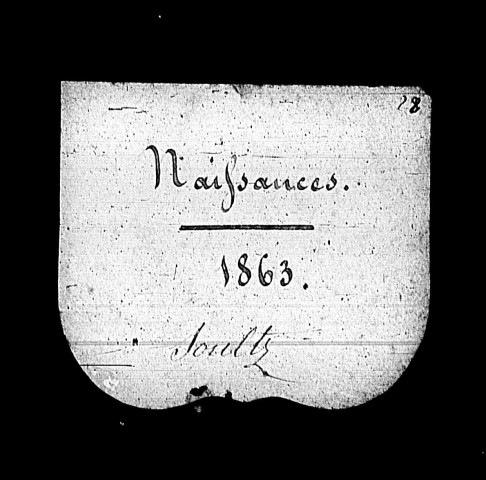 28
Naiſsances.
1863.
Soultz